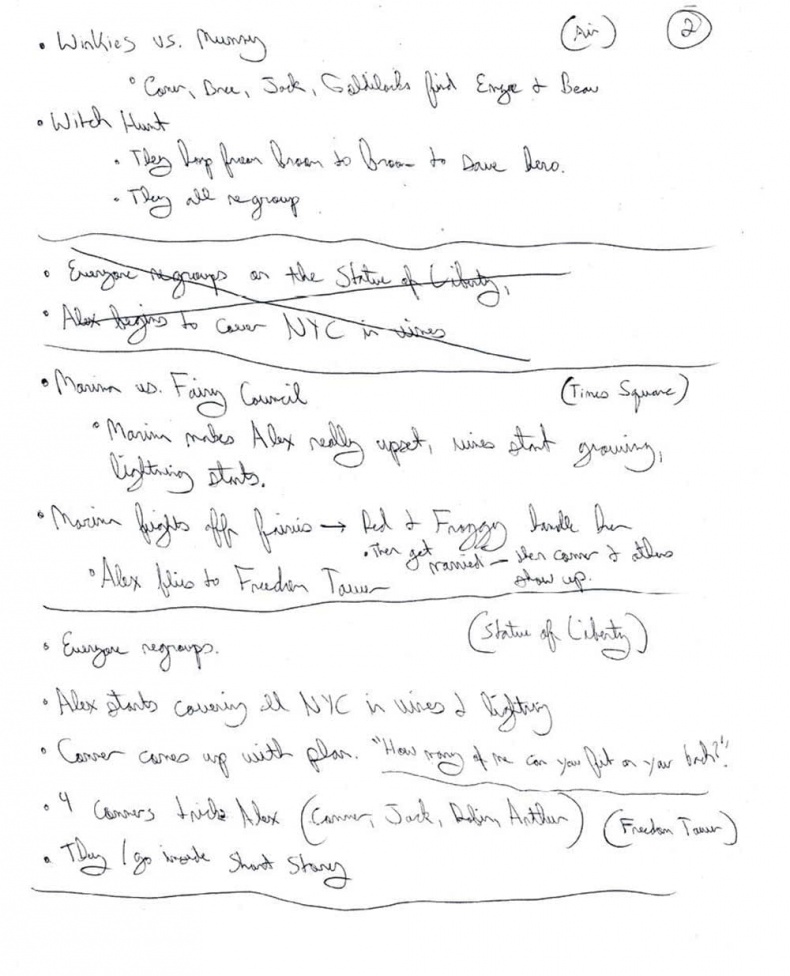 • Winkies vs. Mummy (Air) 2
• Conner, Bree, Jack, Goldilocks find Emgee & Beau
• Witch Hunt
• They hop from broom to broom to save hero.
• They all regroup
• Everyone regroups on the Statue of Liberty,
• Alex begins to cover NYC in vines
• Marina vs. Fairy Council (Times Square)
• Marina makes Alex really upset, vines start growing,
lightning starts.
• Marina fights off fairies → Red & Froggy handle her
• Then get married – then conner & others
show up.
• Alex flies to Freedom Tower
(Statue of Liberty)
• Everyone regroups.
• Alex starts covering all NYC in vines & lightning
• Conner comes up with plan. "How many of me can you fit on your back?"
• 4 Conners trick Alex (Conner, Jack, Robin, Arthur) (Freedom Tower)
• They / go inside Short Story